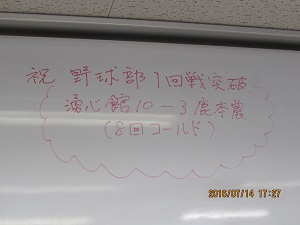 祝 野球部1回戦突破
湧心館10-3鹿本農
(8回コールド)
2016/07/14 17:27